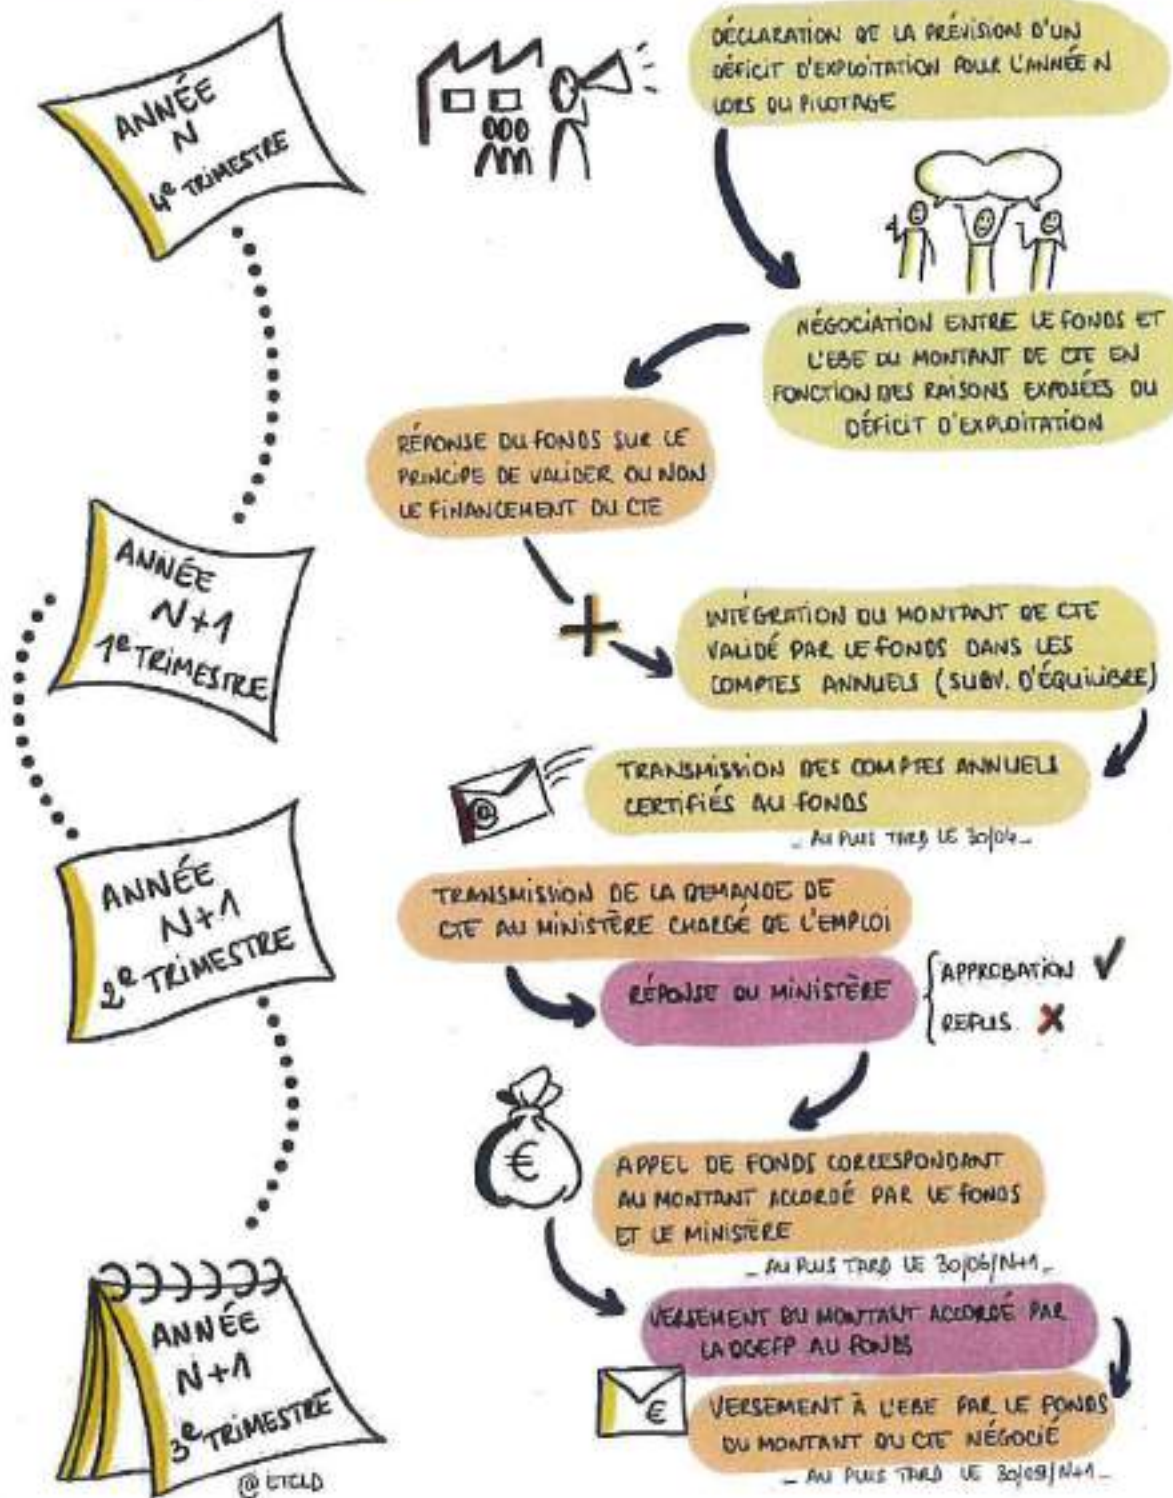 ANNÉE
N
4e TRIMESTRE
DÉCLARATION DE LA PRÉVISION D'UN
DÉFICIT D'EXPLOITATION POUR L'ANNÉE N
LORS DU PILOTAGE
NÉGOCIATION ENTRE LE FONDS ET
L'EBE DU MONTANT DE CTE EN
FONCTION DES RAISONS EXPOSÉES DU
DÉFICIT D'EXPLOITATION
RÉPONSE DU FONDS SUR LE
PRINCIPE DE VALIDER OU NON
LE FINANCEMENT DU CTE
ANNÉE
N+1
1e TRIMESTRE
+
INTÉGRATION DU MONTANT DE CTE
VALIDÉ PAR LE FONDS DANS LES
COMPTES ANNUELS (SUBV. D'ÉQUILIBRE)
@
TRANSMISSION DES COMPTES ANNUELS
CERTIFIÉS AU FONDS
_ AU PLUS TARD LE 30/04 _
ANNÉE
N+1
2e TRIMESTRE
TRANSMISSION DE LA DEMANDE DE
CTE AU MINISTÈRE CHARGÉ DE L'EMPLOI
RÉPONSE DU MINISTÈRE
APPROBATION
REFUS
€
APPEL DE FONDS CORRESPONDANT
AU MONTANT ACCORDÉ PAR LE FONDS
ET LE MINISTÈRE
_ AU PLUS TARD LE 30/06/N+1 _
ANNÉE
N+1
3e TRIMESTRE
VERSEMENT DU MONTANT ACCORDÉ PAR
LA DGEFP AU FONDS
€
VERSEMENT À L'EBE PAR LE FONDS
DU MONTANT DU CTE NÉGOCIÉ
_ AU PLUS TARD LE 30/09/N+1 _
@ ETCLD